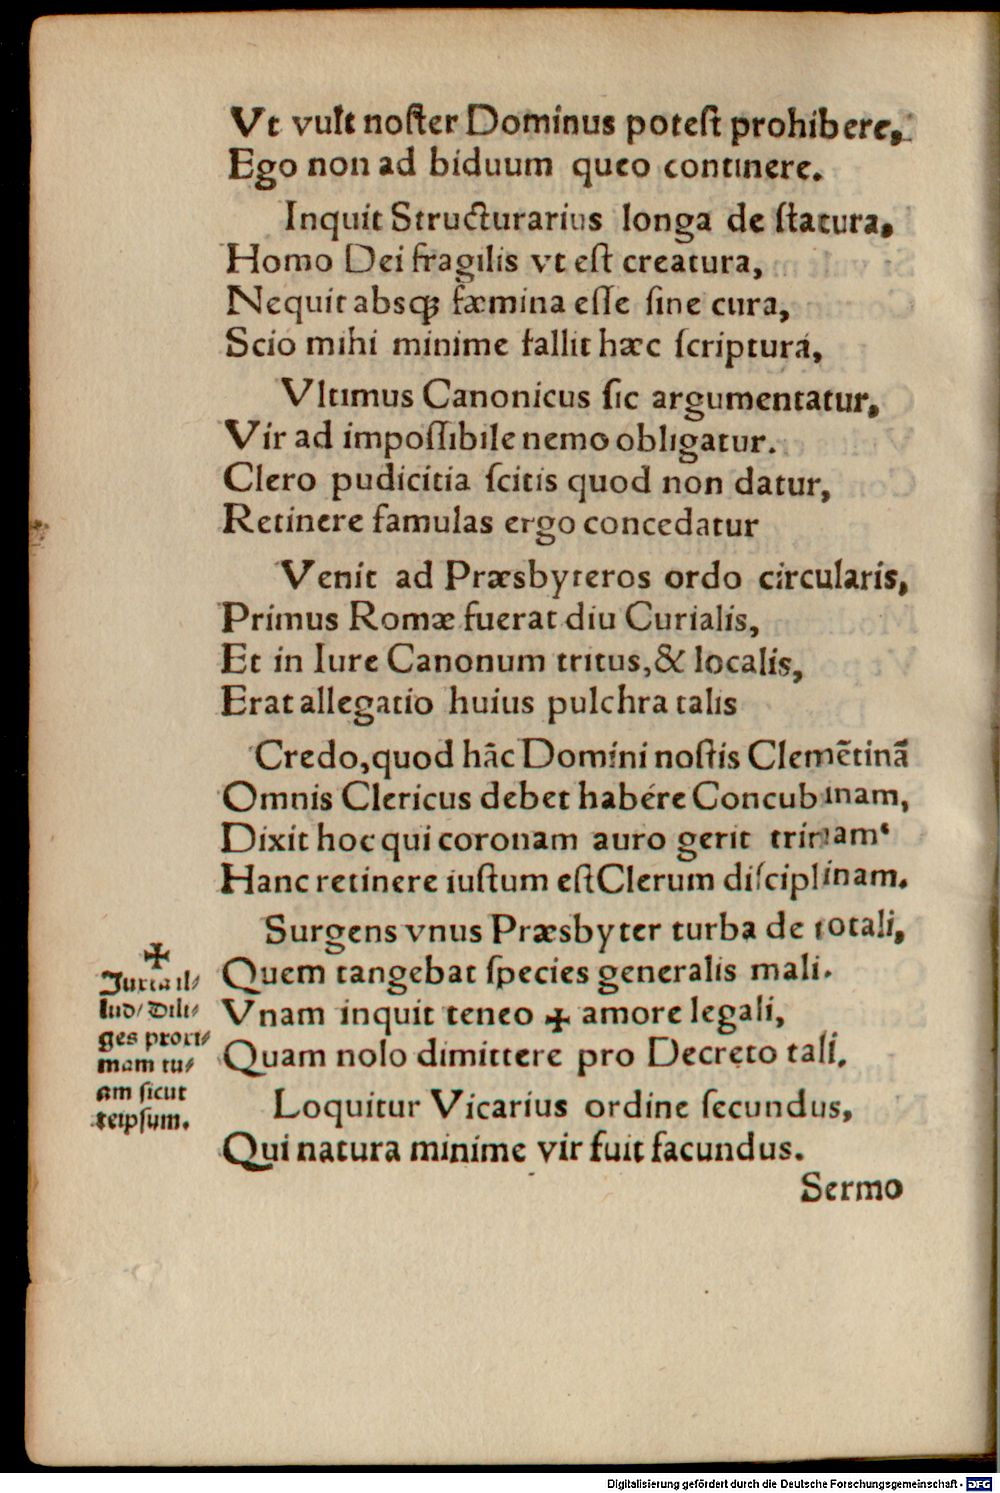 Vt vult noſter Dominus poteſt prohibere,
Ego non ad biduum queo continere.
Inquit Structurarius longa de ſtatura,
Homo Dei fragilis vt eſt creatura,
Nequit absqꝫ fæmina eſſe ſine cura,
Scio mihi minime fallit hæc ſcriptura,
Vltimus Canonicus ſic argumentatur,
Vir ad impoſſibile nemo obligatur.
Clero pudicitia ſcitis quod non datur,
Retinere famulas ergo concedatur
Venit ad Præsbyteros ordo circularis,
Primus Romæ fuerat diu Curialis,
Et in Iure Canonum tritus, & localis,
Erat allegatio huius pulchra talis
Credo, quod hãc Domini noſtis Clemẽtinã
Omnis Clericus debet habere Concubinam,
Dixit hoc qui coronam auro gerit trinam
Hanc retinere iuſtum eſt Clerum diſciplinam.
Surgens vnus Præsbyter turba de totali,
Quem tangebat ſpecies generalis mali.
Vnam inquit teneo ✠ amore legali,
Quam nolo dimittere pro Decreto tali.
Loquitur Vicarius ordine ſecundus,
Qui natura minime vir fuit facundus.
Sermo
✠
Juxta il⸗
lud/ Dili⸗
ges proxi⸗
mam tu⸗
am ſicut
teipſum.
Digitalisierung gefördert durch die Deutsche Forschungsgemeinschaft - DFG